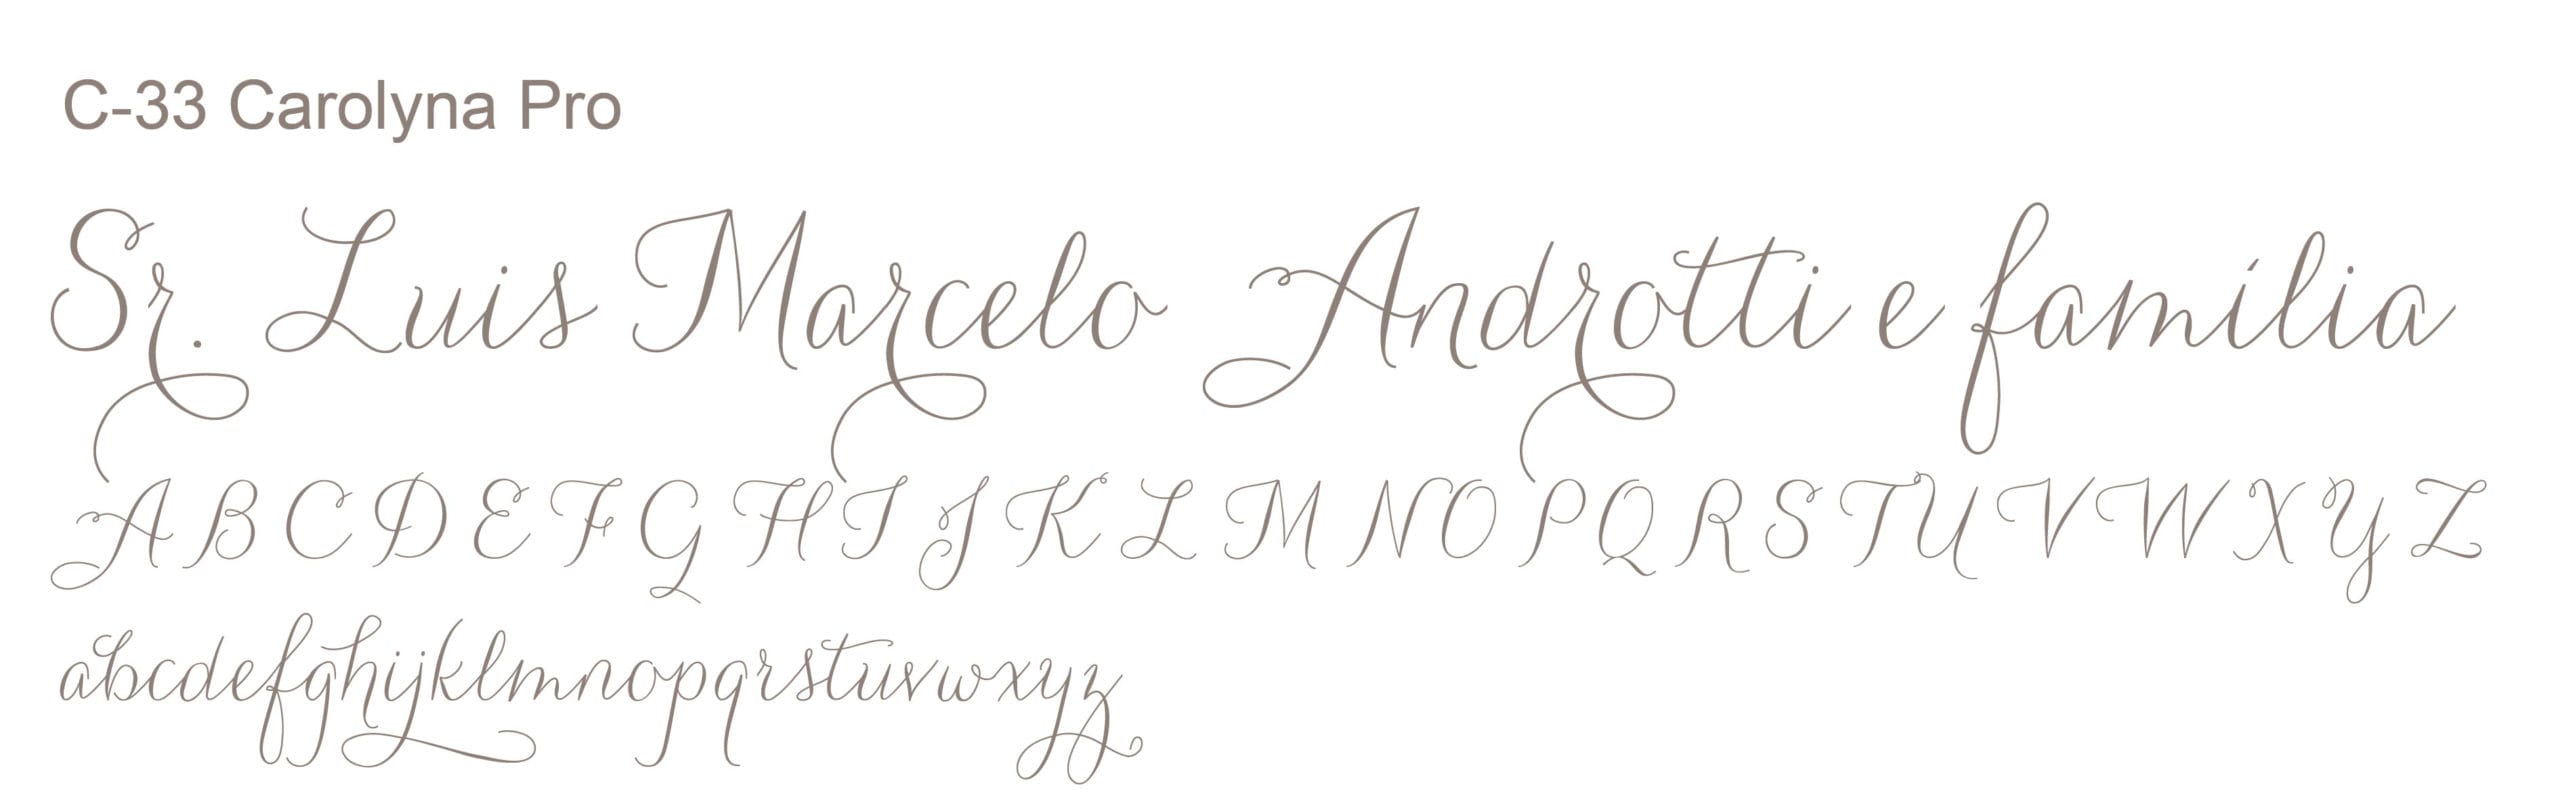 C-33 Carolyna Pro
Sr. Luis Marcelo Androtti e família
A B C D E F G H I J K L M N O P Q R S T U V W X Y Z
abcdefghijklmnopqrstuvwxyz